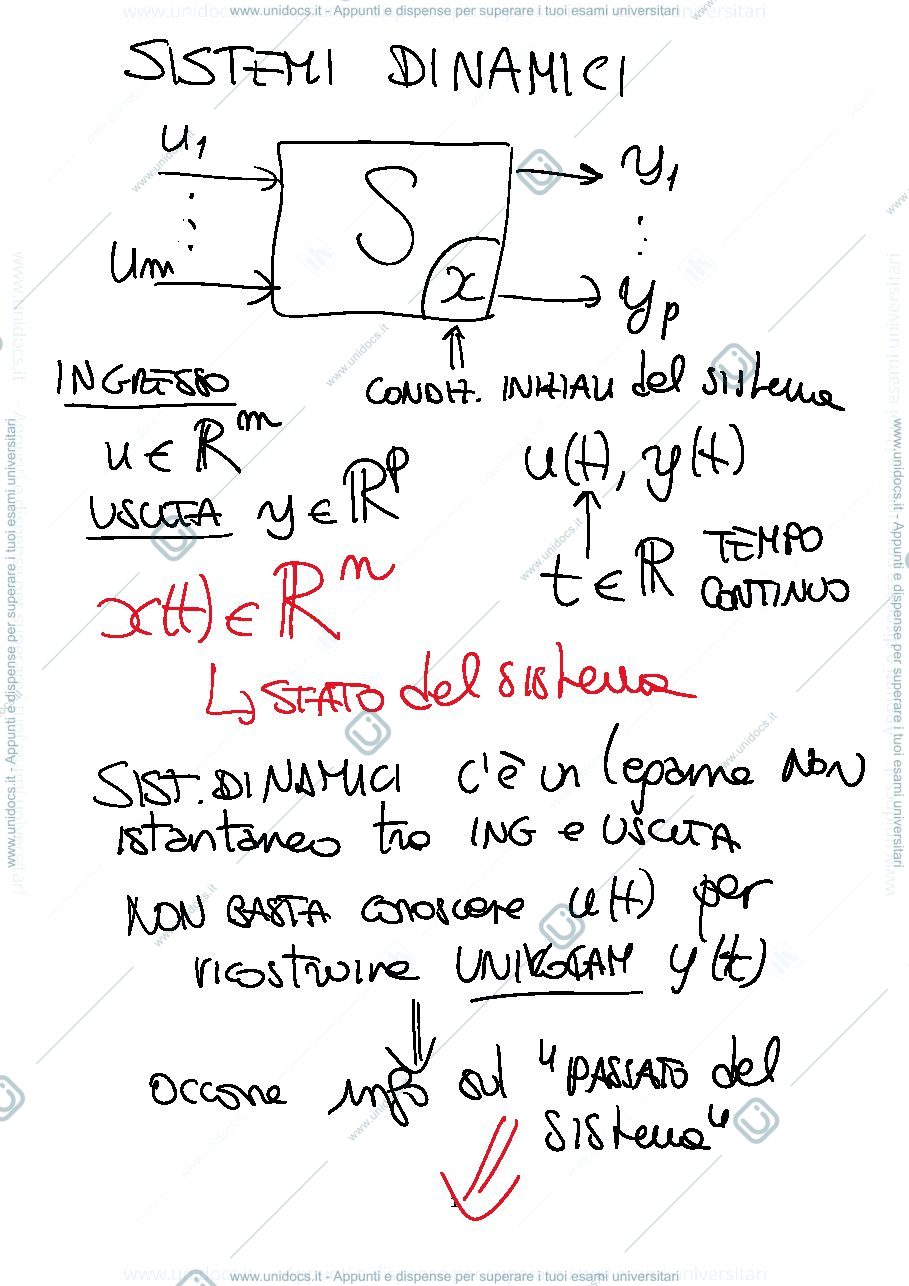 www.unidocs.it - Appunti e dispense per superare i tuoi esami universitari
SISTEMI DINAMICI
u1
y1
S
um
x
yp
INGRESSO
CONDIZ. INIZIALI del sistema
u ∈ ℝ^m
u(t), y(t)
USCITA y ∈ ℝ^p
t ∈ ℝ TEMPO
CONTINUO
x(t) ∈ ℝ^n
↳ STATO del sistema
SIST. DINAMICI c'è un legame NON
istantaneo tra ING e USCITA
NON BASTA conoscere u(t) per
ricostruire UNIVOCAM y(t)
⇓
occorre info sul "PASSATO del
sistema"
1
www.unidocs.it - Appunti e dispense per superare i tuoi esami universitari